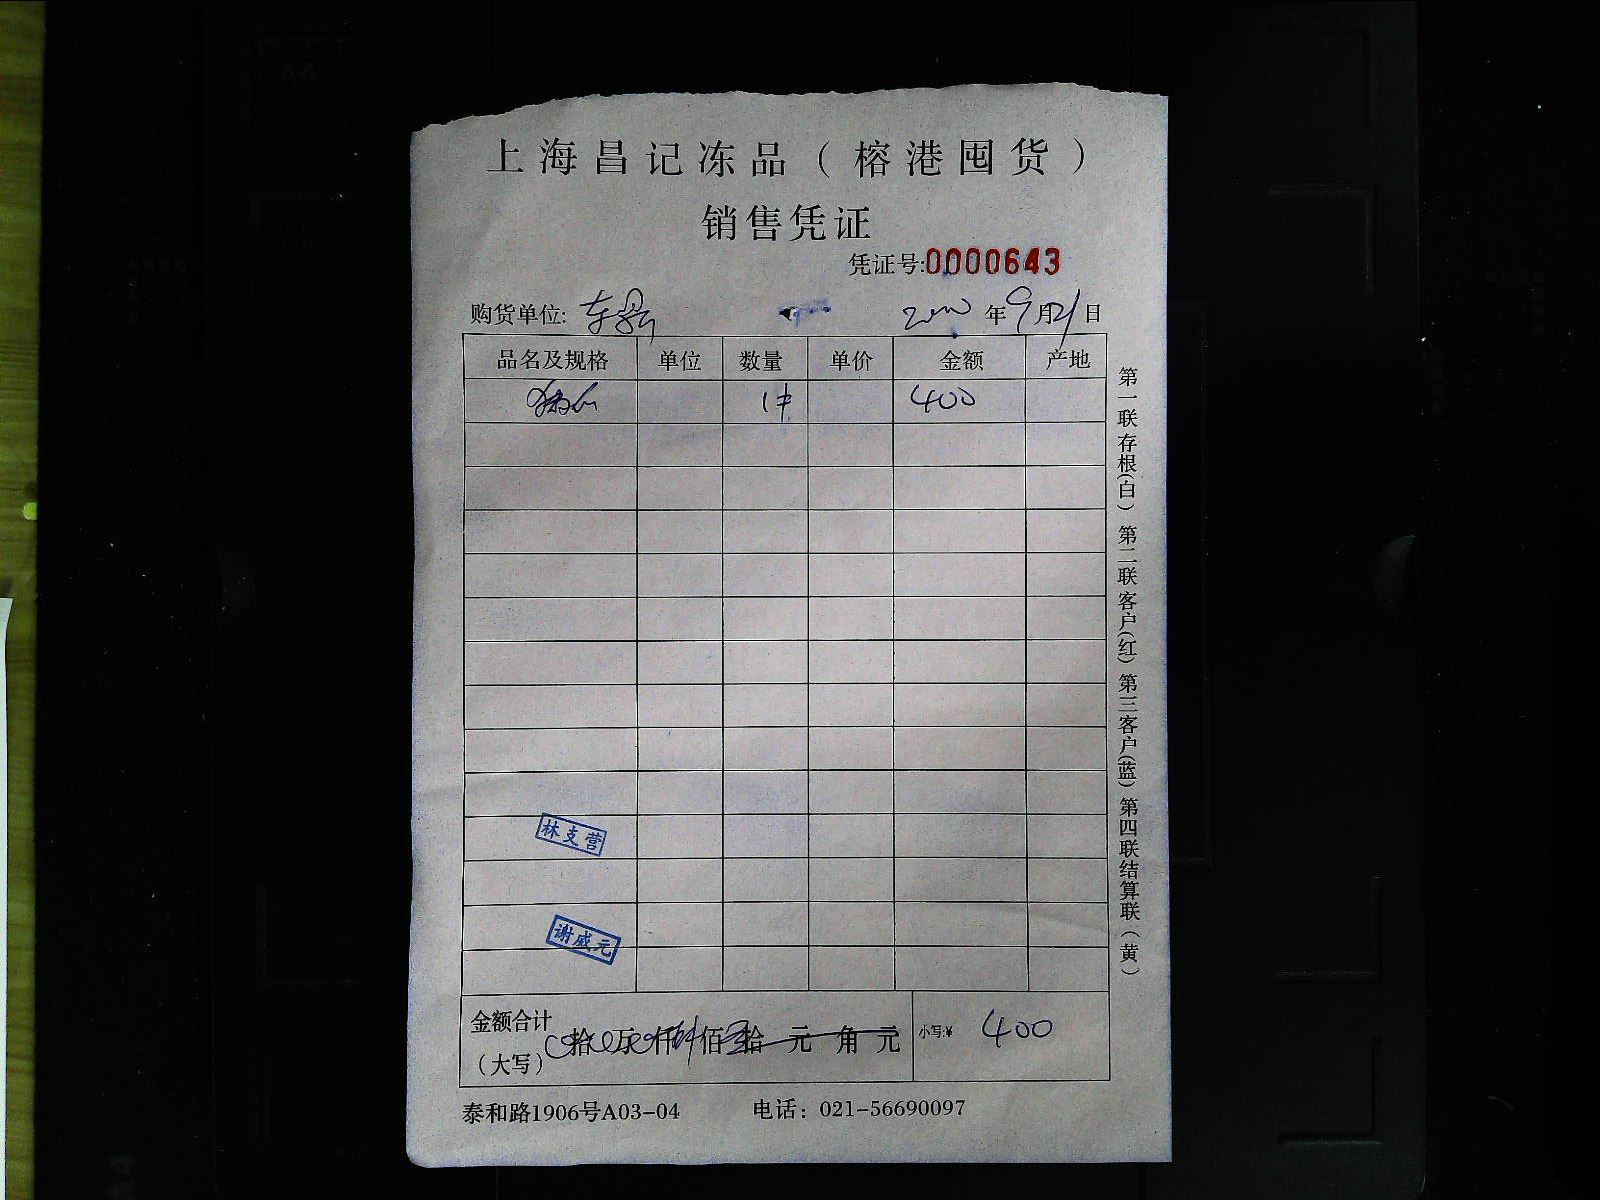 上海昌记冻品（榕港囤货）
销售凭证
凭证号:0000643
购货单位: 年9月21日
品名及规格 单位 数量 单价 金额 产地
1件 400
林支营
谢威元
金额合计
（大写） 拾 万 仟 佰 拾 元 角 元 小写:¥ 400
泰和路1906号A03-04 电话：021-56690097
第一联存根（白）第二联客户（红）第三客户（蓝）第四联结算联（黄）